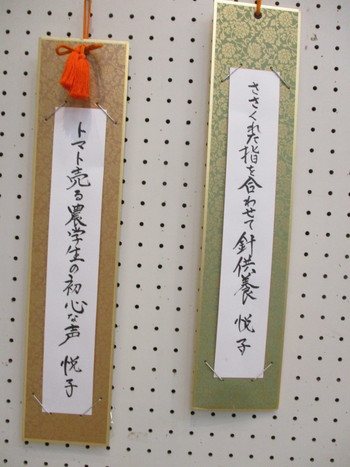 ささくれた指を合わせて針供養 悦子
トマト売る農学生の初心な声 悦子